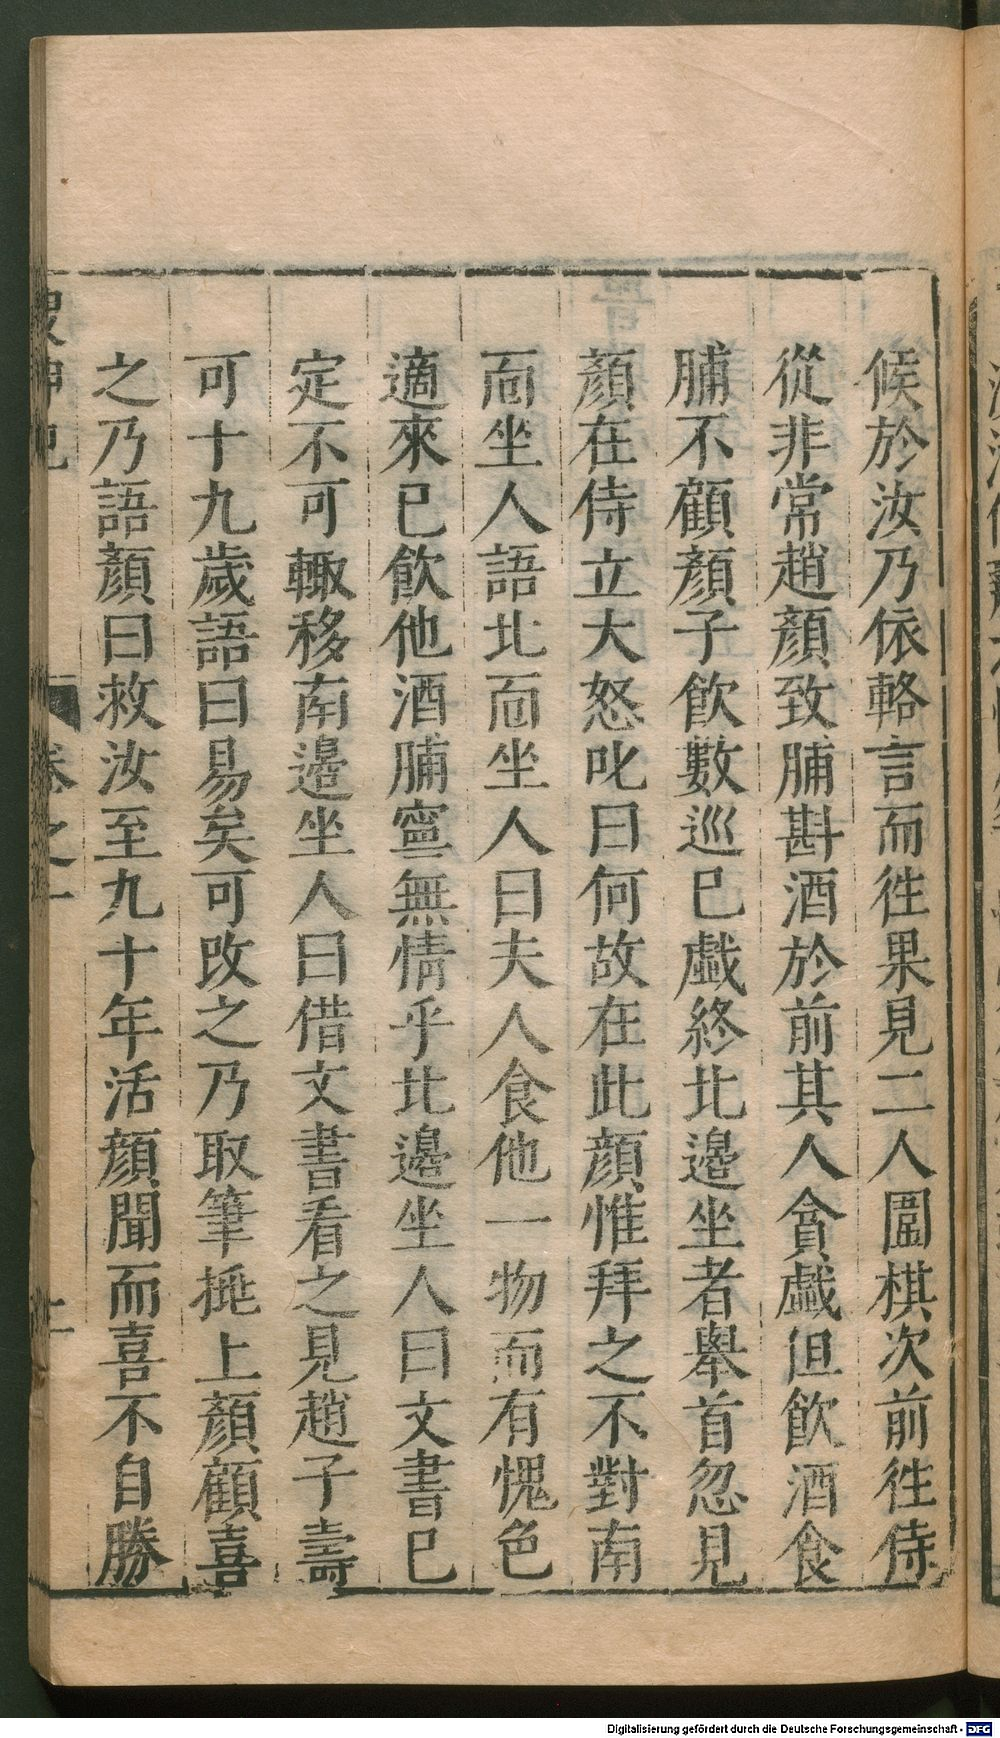 候於汝乃依輅言而徃果見二人圍棋次前徃侍
從非常趙顏致脯斟酒於前其人貪戲但飲酒食
脯不顧顏子飲數巡巳戲終北邊坐者舉首忽見
顏在侍立大怒叱曰何故在此顏惟拜之不對南
面坐人語北面坐人曰夫人食他一物而有愧色
適來巳飲他酒脯寧無情乎北邊坐人曰文書巳
定不可輙移南邊坐人曰借文書看之見趙子壽
可十九歲語曰易矣可改之乃取筆挑上顏顧喜
之乃語顏曰救汝至九十年活顏聞而喜不自勝
卷之一
Digitalisierung gefördert durch die Deutsche Forschungsgemeinschaft - DFG